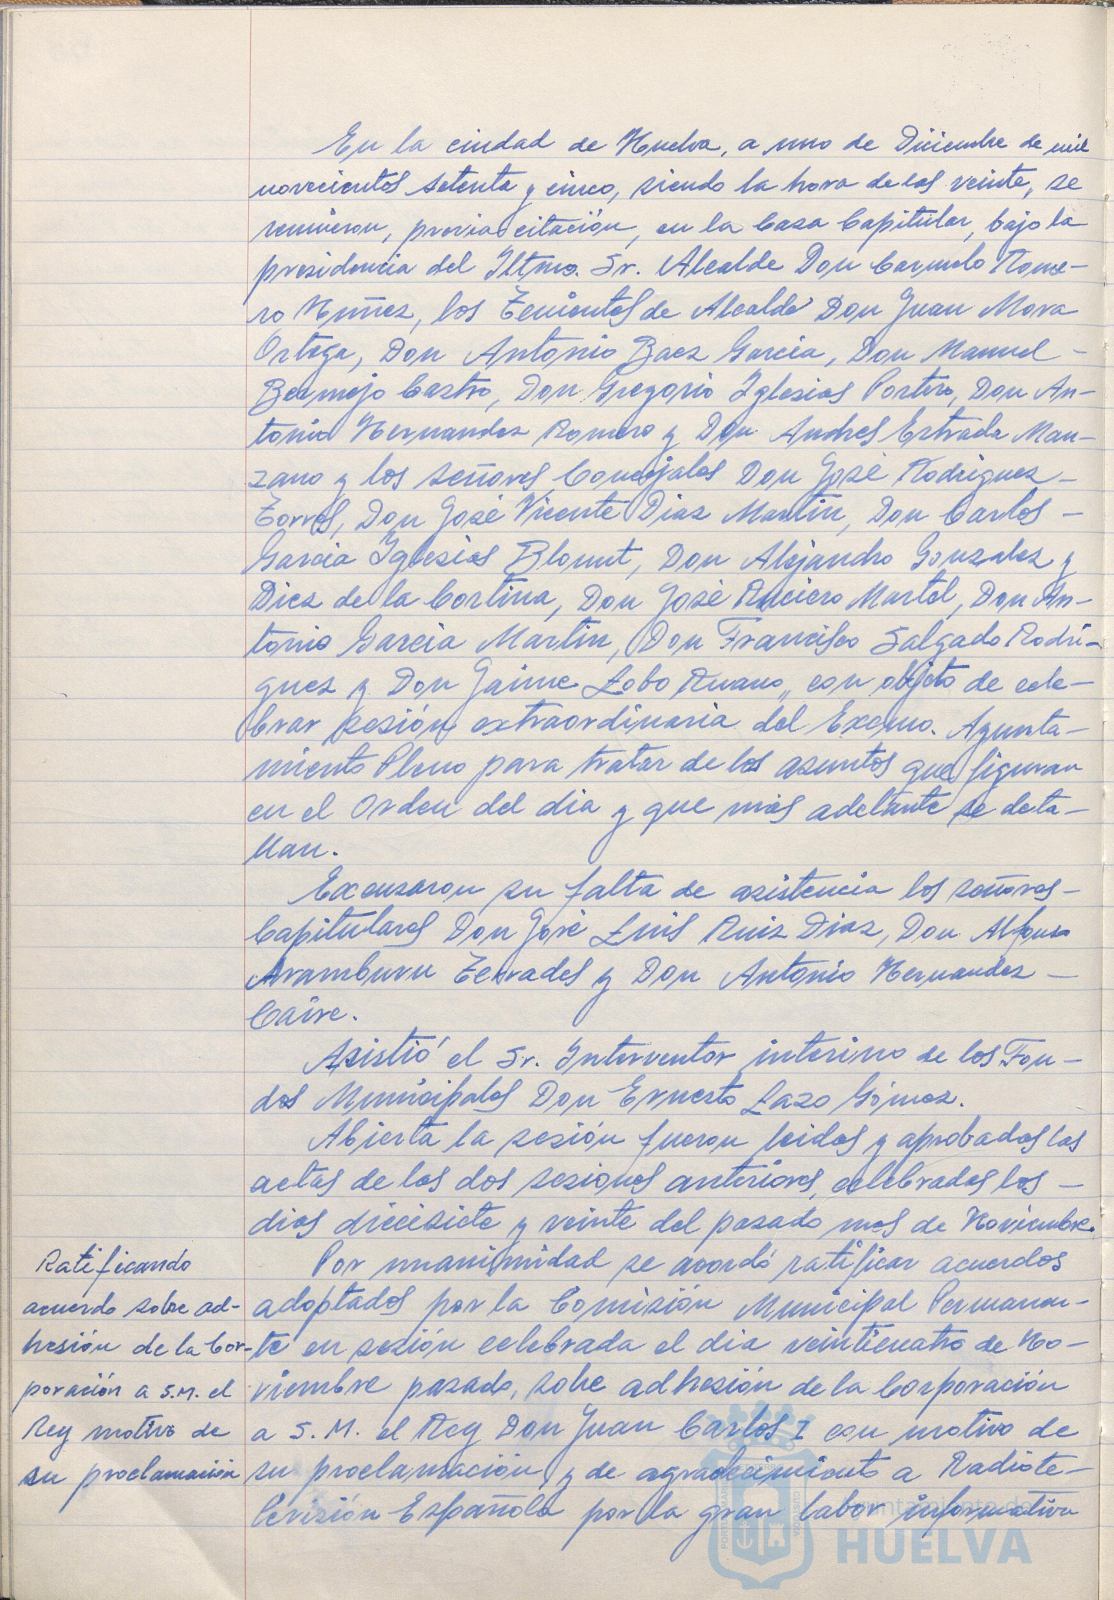 En la ciudad de Huelva, a uno de Diciembre de mil
novecientos setenta y cinco, siendo la hora de las veinte, se
reunieron, previa citación, en la Casa Capitular, bajo la
presidencia del Iltmo. Sr. Alcalde Don Carmelo Rome-
ro Nuñez, los Tenientes de Alcalde Don Juan Mora
Ortega, Don Antonio Baez Garcia, Don Manuel -
Bermejo Castro, Don Gregorio Iglesias Portero, Don An-
tonio Hernandez Romero y Don Andres Estrada Man-
zano y los señores Concejales Don José Rodriguez -
Torres, Don José Vicente Diaz Martin, Don Carlos -
Garcia Iglesias Blount, Don Alejandro Gonzalez y
Diez de la Cortina, Don José Ruciero Martel, Don An-
tonio Garcia Martin, Don Francisco Salgado Rodri-
guez y Don Jaime Lobo Ruano, con objeto de cele-
brar sesión extraordinaria del Excmo. Ayunta-
miento Pleno para tratar de los asuntos que figuran
en el Orden del dia y que más adelante se deta-
llan.
Excusaron su falta de asistencia los señores -
Capitulares Don José Luis Ruiz Diaz, Don Alfonso
Aramburu Terrades y Don Antonio Hernandez -
Caire.
Asistió el Sr. Interventor interino de los Fon-
dos Municipales Don Ernesto Lazo Gómez.
Abierta la sesión fueron leidas y aprobadas las
actas de las dos sesiones anteriores, celebradas los -
dias diecisiete y veinte del pasado mes de Noviembre.
Ratificando
acuerdo sobre ad-
hesión de la Cor-
poración a S.M. el
Rey motivo de
su proclamación
Por unanimidad se acordó ratificar acuerdos
adoptados por la Comisión Municipal Permanen-
te en sesión celebrada el dia veinticuatro de No-
viembre pasado, sobre adhesión de la Corporación
a S.M. el Rey Don Juan Carlos I con motivo de
su proclamación y de agradecimiento a Radiote-
levisión Española por la gran labor informativa
Ayuntamiento de
HUELVA